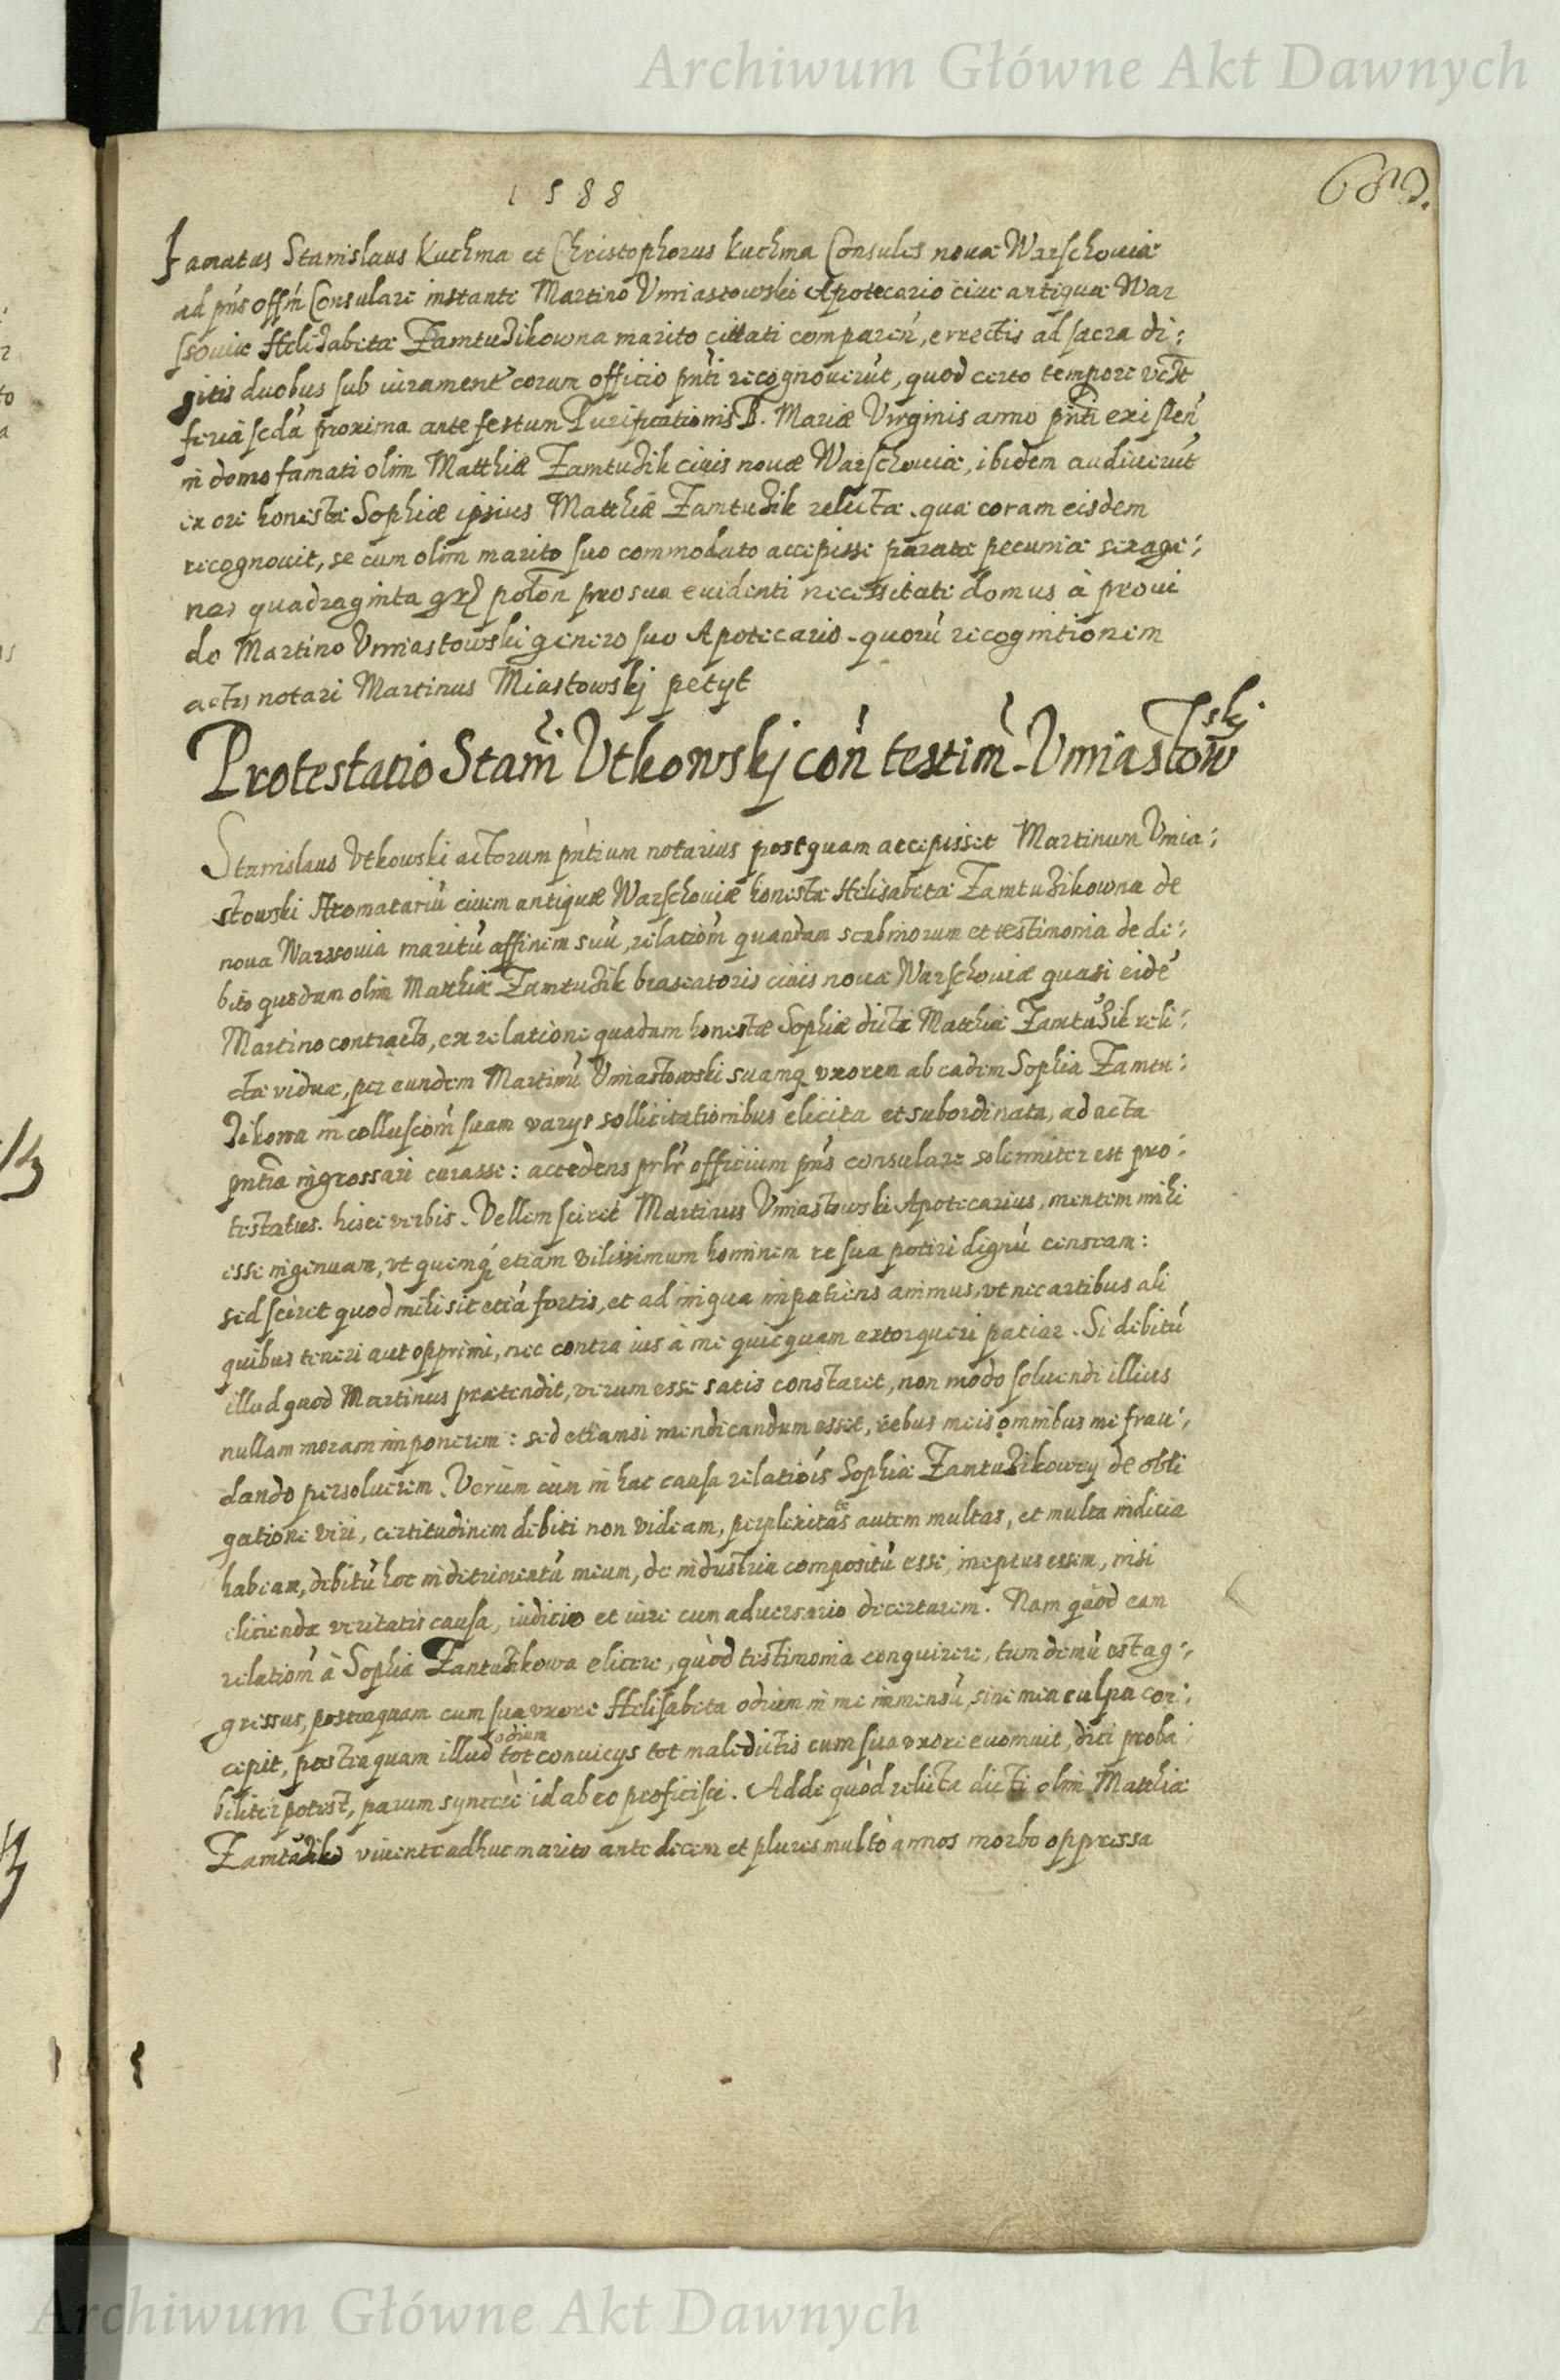 Archiwum Główne Akt Dawnych
1588
689.
Famatus Stanislaus Kuchma et Christophorus Kuchma Consules novæ Warschoviæ
ad pńs offm Consulare instante Martino Vmiastowski Apotecario cive antiquæ War
ssoviæ Helizabetæ Zamtuzikowna marito cittati comparen, errectis ad sacra di:
gitis duobus sub iurament coram officio pnti recognoverut, quod certo tempore
feria scda proxima ante festum Purificationis B. Mariæ Virginis anno pnti existen
in domo famati olim Matthiæ Zamtuzik civis novæ Warschoviæ, ibidem audiverut
ex ore honestæ Sophiæ ipsius Matthiæ Zamtuzik relictæ quæ coram eisdem
recognovit, se cum olim marito suo commodato accepisse paratæ pecuniæ sexage:
nas quadraginta polon pro sua evidenti necessitate domus à provi
do Martino Vmiastowski genero suo Apotecario quorù recognitionem
actis notari Martinus Miastowskj petyt
Protestatio Stanĩ Vtkowskj con testim Vmiastowskj
Stanislaus Vtkowski actorum pntium notarius postquam accepisset Martinum Vmia:
stowski Aromatariu civem antiquæ Warschoviæ honestæ Helisabetæ Zamtuzikowna de
nova Warssovia maritu affinem suu, relatiom quandam scabinorum et testimonia de de:
bito quodam olim Matthiæ Zamtuzik braseatoris civis novæ Warschoviæ quasi eide
Martino contracto, ex relatione quadam honestæ Sophiæ dicti Matthiæ Zamtuzik reli:
ctæ viduæ, per eundem Martinu Vmiastowski suamq uxorem ab eadem Sophia Zamtu:
zikowa in collusiom suam varys sollicitationibus elicita et subordinata, ad acta
pntia ingrossari curasse: accedens officium pns consulare solenniter est pro:
testatus hisce verbis. Vellem sciret Martinus Vmiastowski Apotecarius, mentem mihi
esse ingenuam, vt quemq etiam vilissimum hominem re sua potiri dignu censeam:
sed sciret quod mihi sit etia fortis, et ad iniqua inpatiens animus, vt nec artibus ali
quibus teneri aut opprimi, nec contra ius à me quicquam extorqueri patiar. Si debitu
illud quod Martinus prætendit, verum esse satis constaret, non modo solvendi illius
nullam moram inponerem: sed etiamsi mendicandum esset, rebus meis omnibus me frau:
dando persolverem. Verùm cùm in hac causa relatiois Sophiæ Zantuzikowey de obli
gatione viri, certitudinem debiti non videam, perplexitates autem multas, et multa indicia
habeam, debitu hoc in detrimentu meum, de industria compositu esse, ineptus essem, nisi
eliciendæ veritatis causa, iudicio et iure cum adversario decertarem. Nam quòd eam
relatiom à Sophia Zantuzikowa elicere, quòd testimonia conquirere, tum demu est ag:
gressus, posteaquam cum sua uxore Helisabeta odium in me inmensu, sine mea culpa con:
cepit, posteaquam illud odium tot convicys tot maledictis cum sua uxore evomuit, dici proba:
biliter potest, parum syncerè id ab eo proficisci. Adde quòd relicta dicti olim Matthiæ
Zamtuzik vivente adhuc marito ante decem et plures multò annos morbo oppressa
Archiwum Główne Akt Dawnych